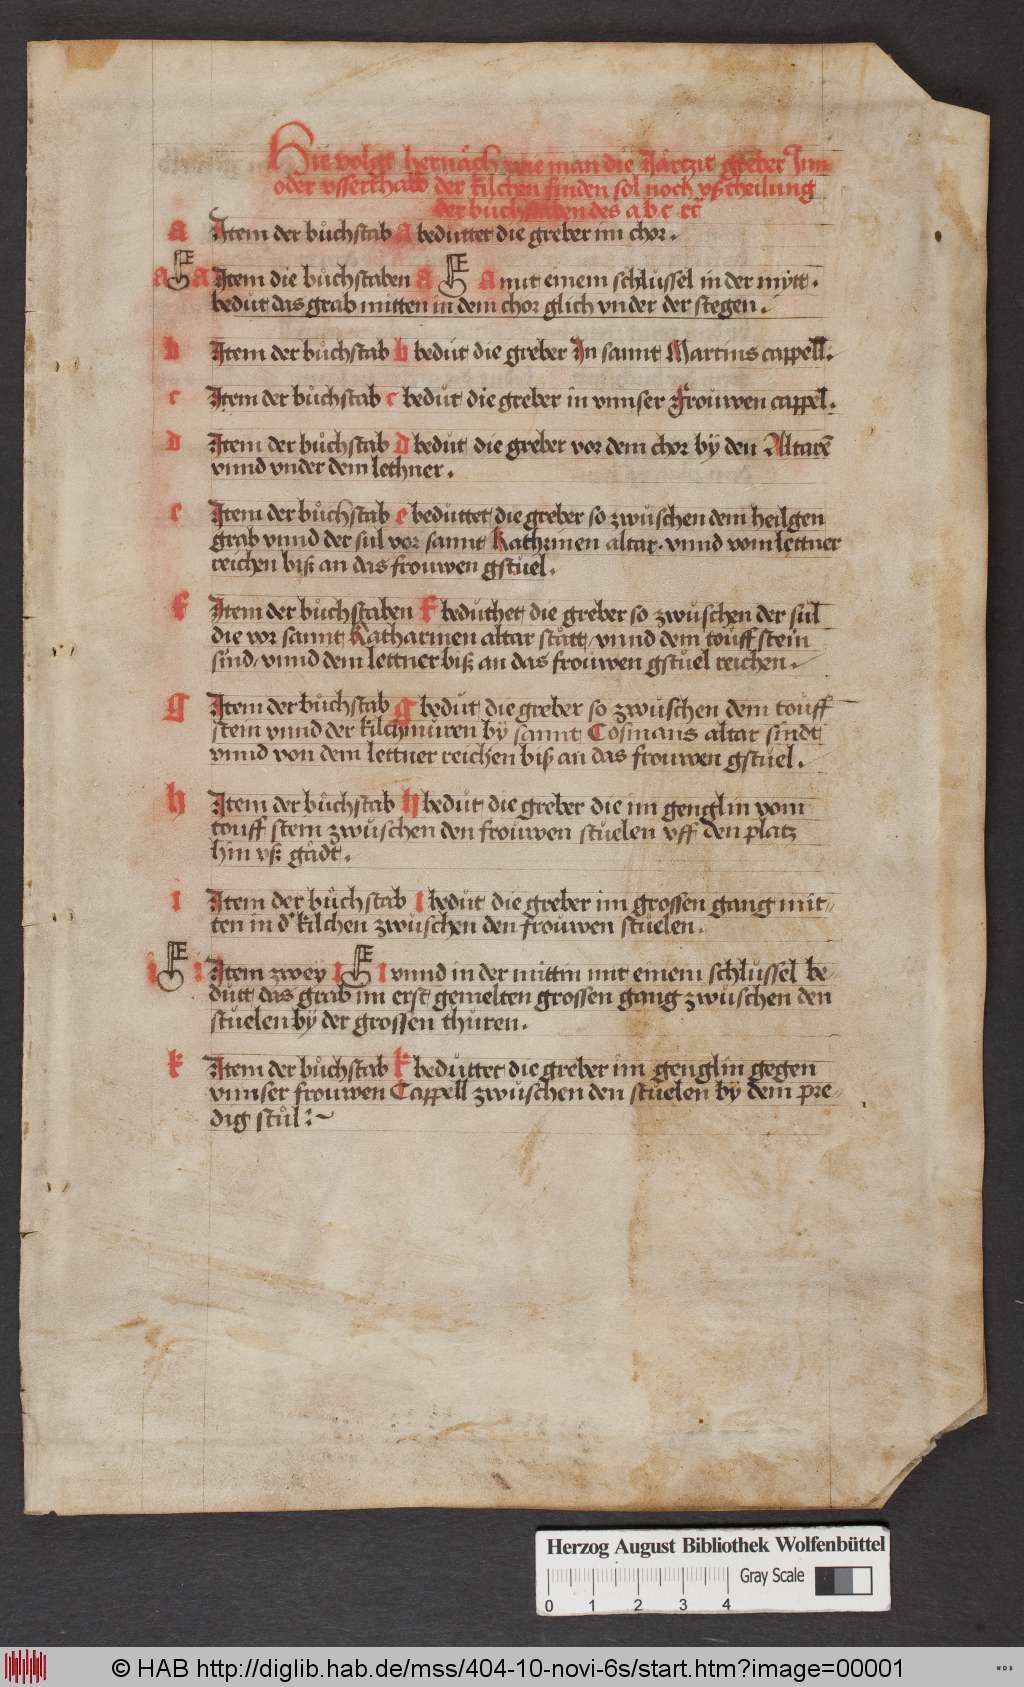 Hie volgt hernäch wie man die Järtzit greber Jnn
oder vsserthalb der kilchen finden sol noch vßtheilung
der buchstaben des a b c ɛc̄
a Jtem der bůchstab a beduttet die greber im chor.
a a Jtem die bůchstaben a a mit einem schlüssel in der mÿtt.
bedüt das grab mitten in dem chor glich vnder der stegen.
b Jtem der bůchstab b bedüt die greber Jn sannt Martins cappell.
c Jtem der bůchstab c bedüt die greber in vnnser Frouwen cappel.
D Jtem der bůchstab D bedüt die greber vor dem chor bÿ den Altarē
vnnd vnder dem lethner.
e Jtem der bůchstab e beduttet die greber so zwüschen dem heilgen
grab vnnd der sul vor sannt kathrinen altar. vnnd vom lettner
reichen biß an das frouwen gstüel.
F Jtem der bůchstaben F beduthet die greber so zwüschen der sul
die vor sannt Katharinen altar stått / vnnd dem touff stein
sind / vnnd dem lettner biß an das frouwen gstüel reichen.
G Jtem der bůchstab G bedüt die greber so zwüschen dem touff
stein vnnd der kilchmuren bÿ sannt Cosmans altar sindt
vnnd von dem lettner reichen biß an das frouwen gstüel.
h Jtem der bůchstab h bedüt die greber die im genglin vom
touff stein zwüschen den frouwen stüelen vff den platz
hin vß gådt.
i Jtem der bůchstab i bedüt die greber im grossen gang mit-
ten in d' kilchen zwüschen den frouwen stüelen.
i i Jtem zwey i i vnnd in der mittin mit einem schlüssel be-
dütt das grab im erst gemelten grossen gang zwüschen den
stüelen bÿ der grossen thüren.
k Jtem der bůchstab k bedüttet die greber im genglin gegen
vnnser frouwen Cappell zwüschen den stüelen bÿ dem pre-
dig stůl :~
Herzog August Bibliothek Wolfenbüttel
0 1 2 3 4 Gray Scale
© HAB http://diglib.hab.de/mss/404-10-novi-6s/start.htm?image=00001